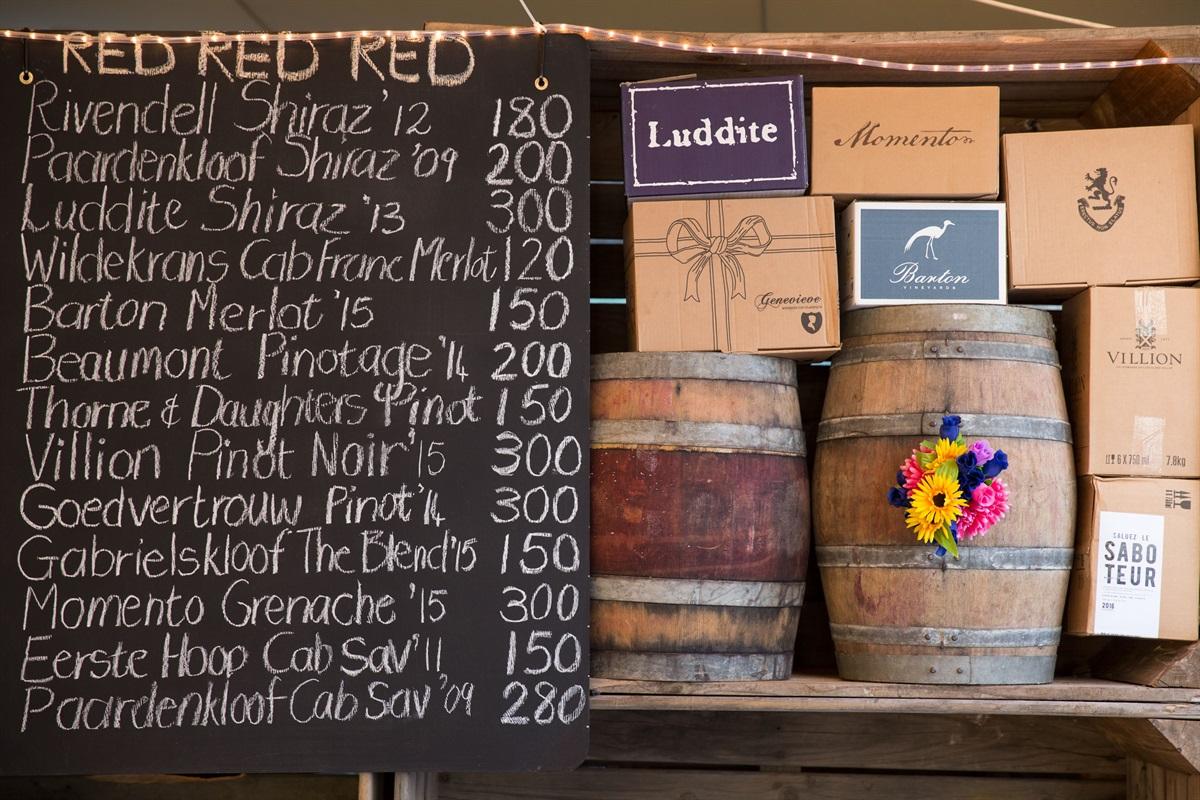 RED RED RED
Rivendell Shiraz '12 180
Paardenkloof Shiraz '09 200
Luddite Shiraz '13 300
Wildekrans Cab Franc Merlot 120
Barton Merlot '15 150
Beaumont Pinotage '14 200
Thorne & Daughters Pinot 150
Villion Pinot Noir '15 300
Goedvertrouw Pinot '14 300
Gabrielskloof The Blend '15 150
Momento Grenache '15 300
Eerste Hoop Cab Sav '11 150
Paardenkloof Cab Sav '09 280
Luddite
Momento
Genevieve
Barton
VINEYARDS
VILLION
6 X 750 ml 7.8kg
SALUEZ LE
SABO
TEUR
2016